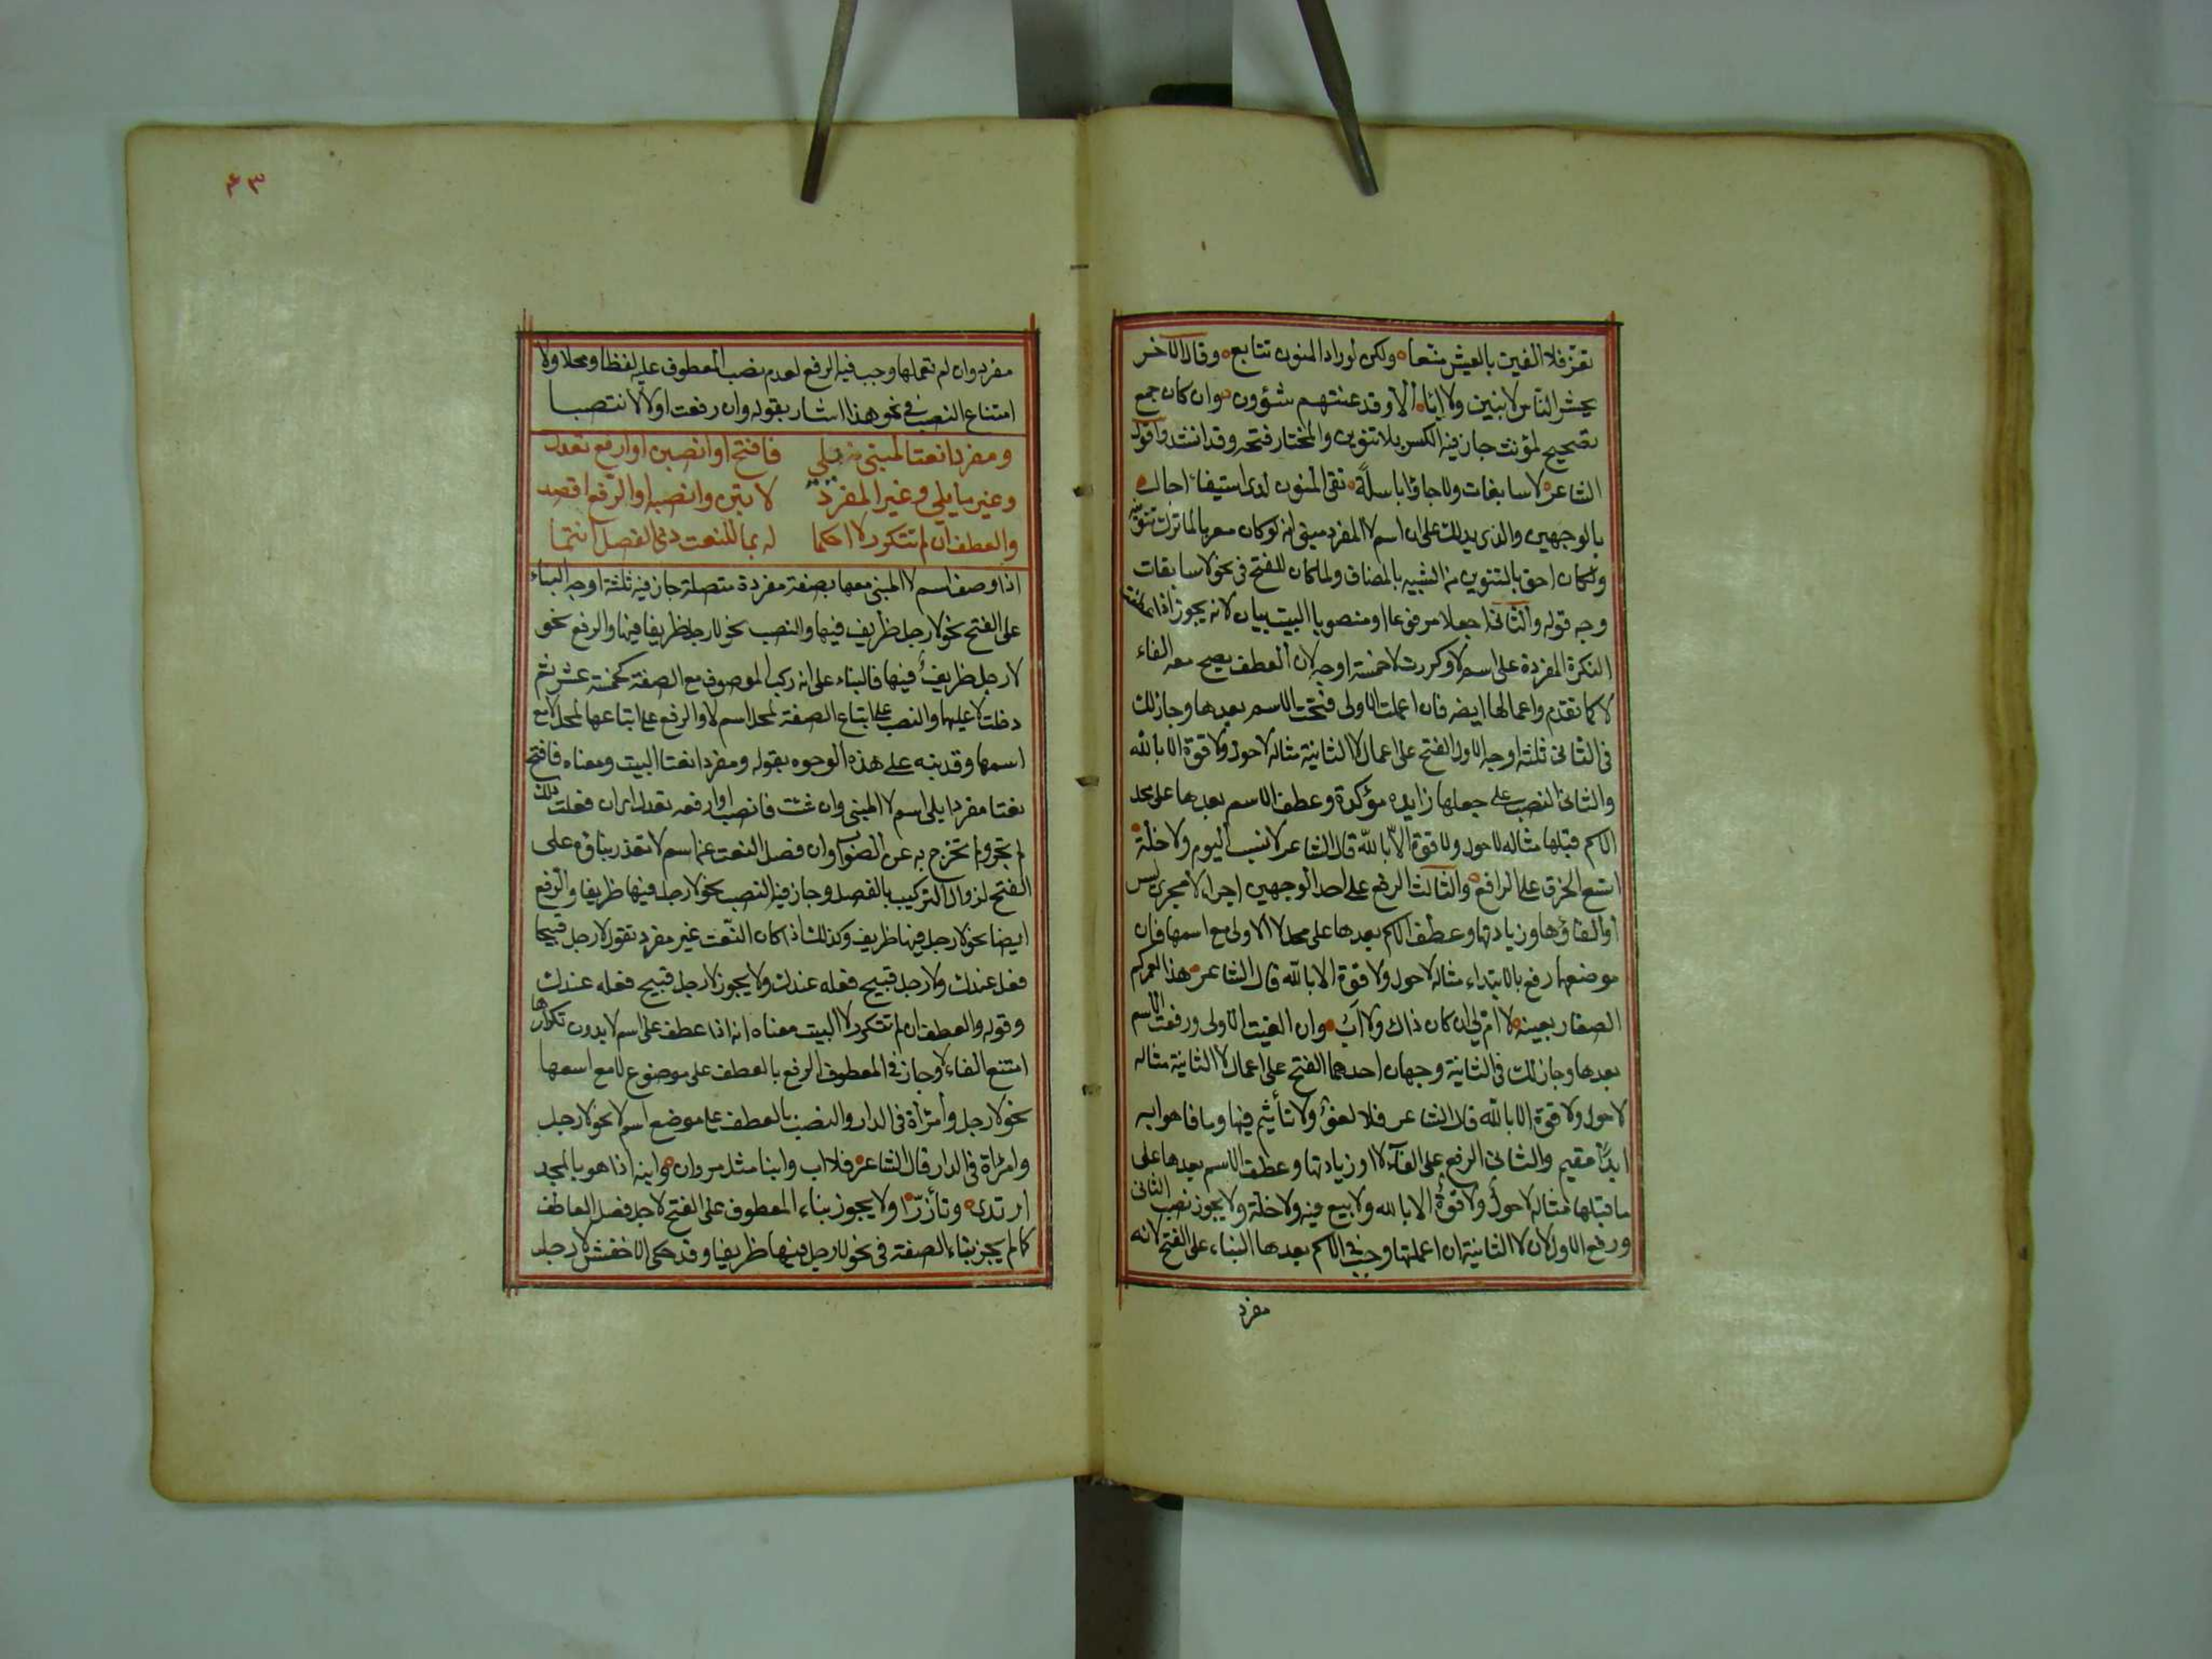 تعز فلا الفين بالعيش متعا ولكن لوراد المنون تتابع وقال الآخر
يحشر الناس لا بنين ولا اباء الا وقد عنتهم شؤون وان كان جمع
تصحيح لمؤنث جاز فيه الكسر بلا تنوين والمختار فتحه وقد انشد واقول
الشاعر لا سابغات ولا جاوا باسلة تقى المنون لدى استيفاء اجال
بالوجهين والذي يدلك على ان اسم لا المفرد مبنى انه لو كان معربا لما ترك تنوينه
ولكان احق بالتنوين من الشبيه بالمضاف ولما كان للفتح في نحو لا سابغات
وجه قوله والثاني اجعلا مرفوعا او منصوبا البيت بيان لانه يجوز اذا عطفت
النكرة المفردة على اسم لا وكررت لا خمسة اوجه لان العطف يصح معه الغاء
لا كما تقدم واعمالها ايضه فان اعملت الاولى فتحت الاسم بعدها وجاز لك
فى الثاني ثلثة اوجه الاول الفتح على اعمال لا الثانية مثاله لا حول ولا قوة الا بالله
والثاني النصب على جعلها زايده مؤكدة وعطف الاسم بعدها على محل
الاسم قبلها مثاله لا حول ولا قوة الا بالله قال الشاعر لا نسب اليوم ولا خلة
اتسع الخرق على الراقع والثالث الرفع على احد الوجهين اجراء لا مجرى ليس
او الغاؤها وزيادتها وعطف الاسم بعدها على محل لا الاولى مع اسمها فان
موضعها رفع بالابتداء مثاله لا حول ولا قوة الا بالله قال الشاعر هذا لعمركم
الصغار بعينه لا ام لي ان كان ذاك ولا اب وان الغيت الاولى ورفعت الاسم
بعدها وجاز لك في الثانية وجهان احدهما الفتح على اعمال لا الثانية مثاله
لا حول ولا قوة الا بالله قال الشاعر فلا لغو ولا تأثيم فيها وما فاهوا به
ابدا مقيم والثاني الرفع على الغآء لا او زيادتها وعطف الاسم بعدها على
ما قبلها مثاله لا حول ولا قوة الا بالله ولا بيع فيه ولا خلة ولا يجوز نصب الثاني
ورفع الاول لان لا الثانية ان اعملتها وجب في الاسم بعدها البناء على الفتح لانه
مفرد
٤٣
مفرد وان لم تعملها وجب فيه الرفع لعدم نصب المعطوف عليه لفظا ومحلا ولا
امتناع النصب في نحو هذا اشار بقوله وان رفعت اولا لا تنصبا
ومفردا نعتا لمبنى يلى فافتح او انصبن او ارفع تعدل
وغير ما يلى وغير المفرد لا تبن وانصبه او الرفع اقصد
والعطف ان لم تتكرر لا احكما له بما للنعت ذي الفصل انتما
اذا وصف اسم لا المبنى معها بصفة مفردة متصلة جاز فيه ثلثة اوجه البناء
على الفتح نحو لا رجل ظريف فيها والنصب نحو لا رجل ظريفا فيها والرفع نحو
لا رجل ظريف فيها فالبناء على انه ركب الموصوف مع الصفة كخمسة عشر ثم
دخلت لا عليها والنصب على اتباع الصفة لمحل اسم لا والرفع على اتباعها لمحل لا مع
اسمها وقد نبه على هذه الوجوه بقوله ومفردا نعتا البيت ومعناه فافتح
نعتا مفردا يلى اسم لا المبنى وان شئت فانصبه او ارفعه تعدل اي ان فعلت ذلك
لم تجر ولم تخرج به عن الصواب وان فصل النعت عن اسم لا تعذر بناؤه على
الفتح لزوال التركيب بالفصل وجاز فيه النصب نحو لا رجل فيها ظريفا والرفع
ايضا نحو لا رجل فيها ظريف وكذلك اذا كان النعت غير مفرد تقول لا رجل قبيحا
فعله عندك ولا رجل قبيح فعله عندك ولا يجوز لا رجل قبيح فعله عندك
وقوله والعطف ان لم تتكرر لا البيت معناه انه اذا عطف على اسم لا بدون تكرارها
امتنع الغاء لا وجاز في المعطوف الرفع بالعطف على موضوع لا مع اسمها
نحو لا رجل وامرأة في الدار والنصب بالعطف على موضع اسم لا نحو لا رجل
وامرأة في الدار قال الشاعر فلا اب وابنا مثل مروان وابنه اذا هو بالمجد
ارتدى وتأزرا ولا يجوز بناء المعطوف على الفتح لاجل فصل العاطف
كما لم يجز بناء الصفة في نحو لا رجل فيها ظريفا وقد حكى الاخفش لا رجل